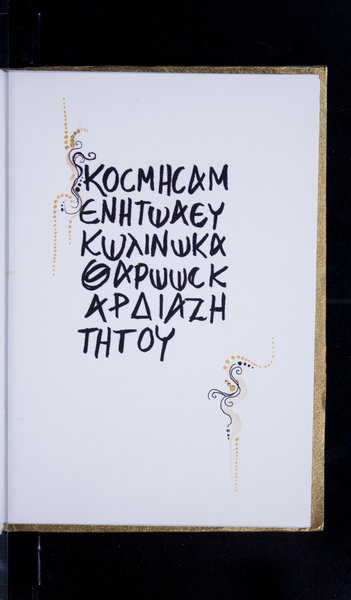 ΚΟϹΜΗϹΑΜ
ΕΝΗΤωΑΕΥ
ΚωΛΙΝωΚΑ
ΘΑΡωωϹΚ
ΑΡΔΙΑΖΗ
ΤΗΤΟΥ